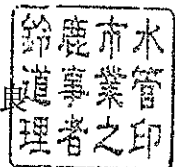 良
鈴鹿市水
道事業管
理者之印